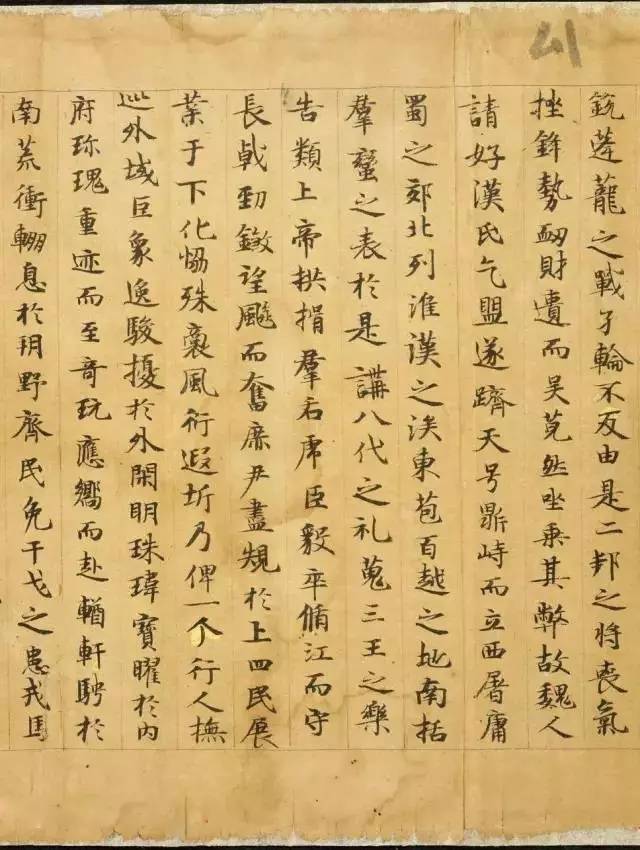 銳蓬蘢之戰孑輪不反由是二邦之將喪氣
挫鋒勢衂財遺而吳莞然坐乘其弊故魏人
請好漢氏乞盟遂躋天号鼎峙而立西屠庸
蜀之郊北列淮漢之涘東苞百越之地南括
羣蠻之表於是講八代之礼蒐三王之樂
告類上帝拱揖羣后虎臣毅卒脩江而守
長戟勁鎩望飈而奮庶尹盡規於上四民展
業于下化恊殊裔風衍遐圻乃俾一个行人撫
巡外域巨象逸駿擾於外閑明珠瑋寶曜於内
府珎瑰重迹而至奇玩應嚮而赴輶軒騁於
南荒衝輣息於朔野齊民免干戈之患戎馬